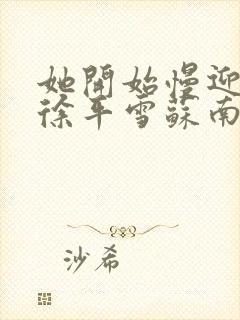 她開始慢迎
徐平雪蘇南
沙希